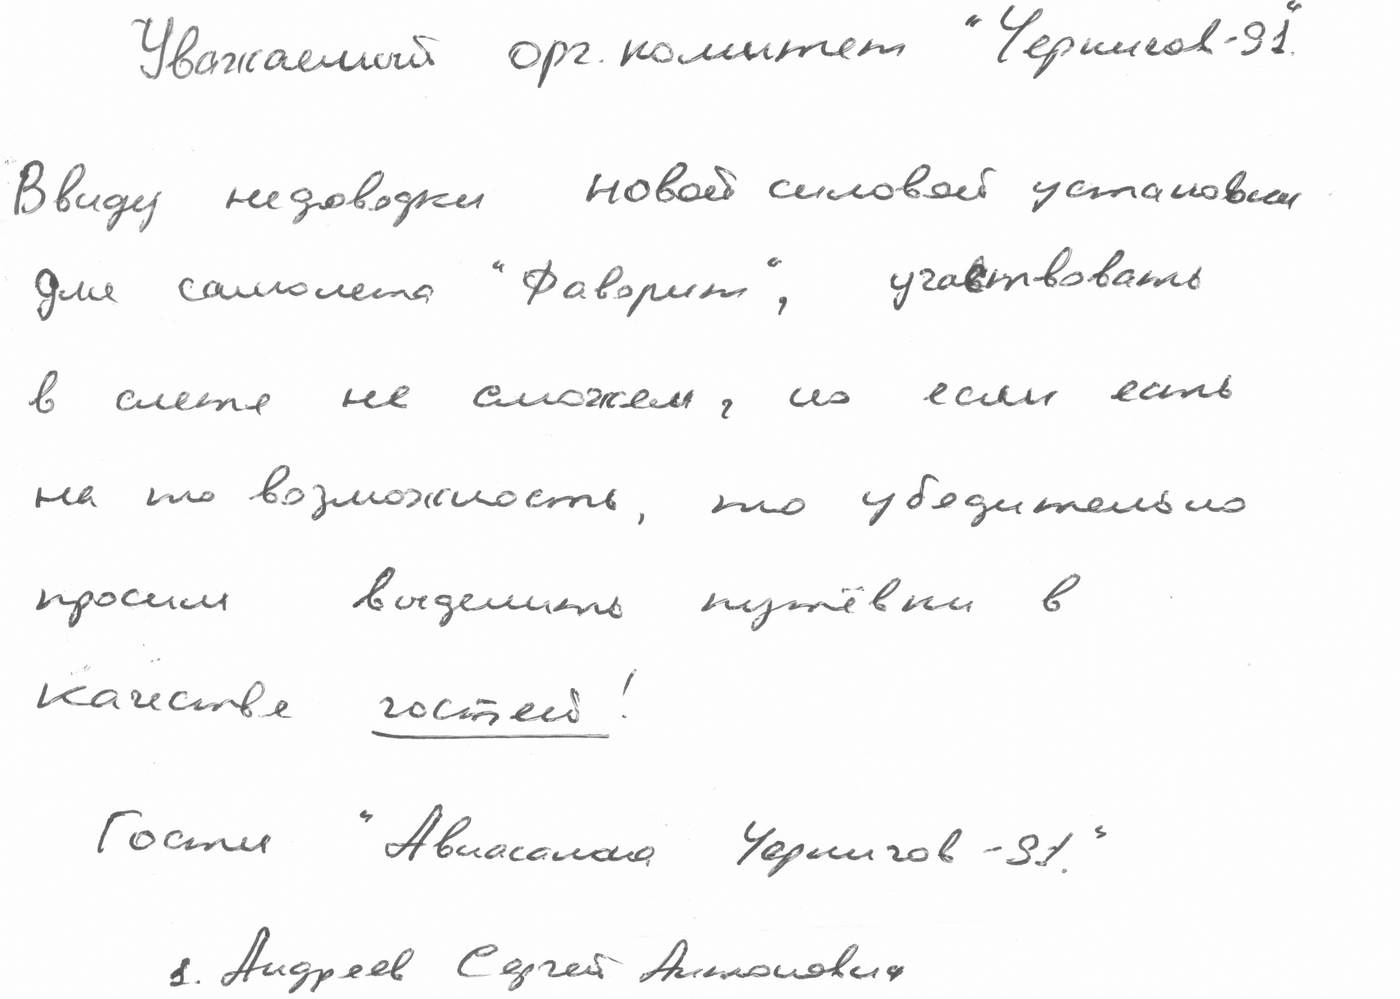 Уважаемый орг. комитет "Чернигов-91."
Ввиду недоводки новой силовой установки
для самолета "Фаворит", участвовать
в слете не сможем, но если есть
на то возможность, то убедительно
просим выделить путёвки в
качестве гостей!
Гости "Авиасалона Чернигов-91."
1. Андреев Сергей Антонович